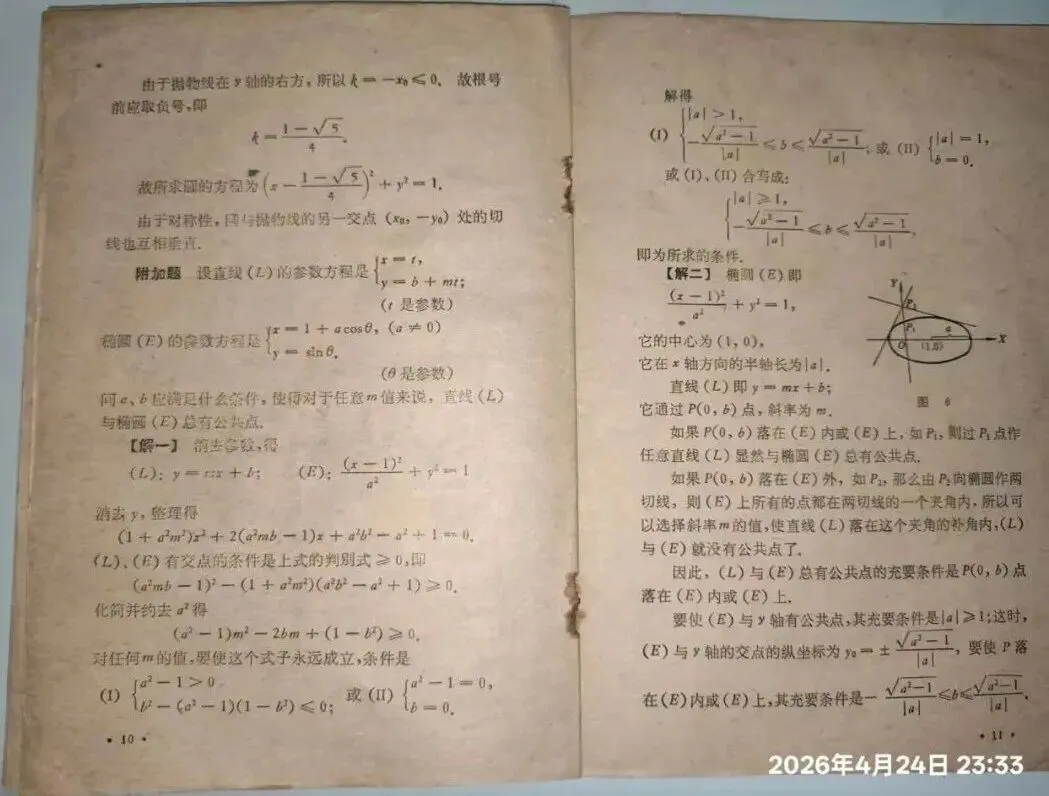 由于抛物线在 y 轴的右方，所以 k = −x₀ ≤ 0。 故根号
前应取负号，即
k = (1 − √5)/4.
故所求圆的方程为 (x − (1 − √5)/4)² + y² = 1.
由于对称性，圆与抛物线的另一交点 (x₀, −y₀) 处的切
线也互相垂直.
附加题 设直线 (L) 的参数方程是 {x = t,
y = b + mt;
(t 是参数)
椭圆 (E) 的参数方程是 {x = 1 + a cosθ, (a ≠ 0)
y = sinθ.
(θ 是参数)
问 a、b 应满足什么条件，使得对于任意 m 值来说，直线 (L)
与椭圆 (E) 总有公共点.
【解一】 消去参数，得
(L): y = mx + b; (E): (x − 1)²/a² + y² = 1
消去 y，整理得
(1 + a²m²)x² + 2(a²mb − 1)x + a²b² − a² + 1 = 0.
(L)、(E) 有交点的条件是上式的判别式 ≥ 0，即
(a²mb − 1)² − (1 + a²m²)(a²b² − a² + 1) ≥ 0.
化简并约去 a² 得
(a² − 1)m² − 2bm + (1 − b²) ≥ 0.
对任何 m 的值，要使这个式子永远成立，条件是
(I) {a² − 1 > 0
b² − (a² − 1)(1 − b²) ≤ 0; 或 (II) {a² − 1 = 0,
b = 0.
• 10 •
解得
(I) {|a| > 1,
−√(a² − 1)/|a| ≤ b ≤ √(a² − 1)/|a|; 或 (II) {|a| = 1,
b = 0.
或 (I)、(II) 合写成：
{|a| ≥ 1,
−√(a² − 1)/|a| ≤ b ≤ √(a² − 1)/|a|,
即为所求的条件.
【解二】 椭圆 (E) 即
(x − 1)²/a² + y² = 1,
它的中心为 (1, 0),
它在 x 轴方向的半轴长为 |a|.
直线 (L) 即 y = mx + b;
它通过 P(0, b) 点，斜率为 m.
Y
P₂
P₁
a
O
(1,0)
X
图 6
如果 P(0, b) 落在 (E) 内或 (E) 上，如 P₁，则过 P₁ 点作
任意直线 (L) 显然与椭圆 (E) 总有公共点.
如果 P(0, b) 落在 (E) 外，如 P₂，那么由 P₂ 向椭圆作两
切线，则 (E) 上所有的点都在两切线的一个夹角内，所以可
以选择斜率 m 的值，使直线 (L) 落在这个夹角的补角内，(L)
与 (E) 就没有公共点了.
因此，(L) 与 (E) 总有公共点的充要条件是 P(0, b) 点
落在 (E) 内或 (E) 上.
要使 (E) 与 y 轴有公共点，其充要条件是 |a| ≥ 1；这时，
(E) 与 y 轴的交点的纵坐标为 y₀ = ± √(a² − 1)/|a|，要使 P 落
在 (E) 内或 (E) 上，其充要条件是 −√(a² − 1)/|a| ≤ b ≤ √(a² − 1)/|a|.
• 11 •
2026年4月24日 23:33